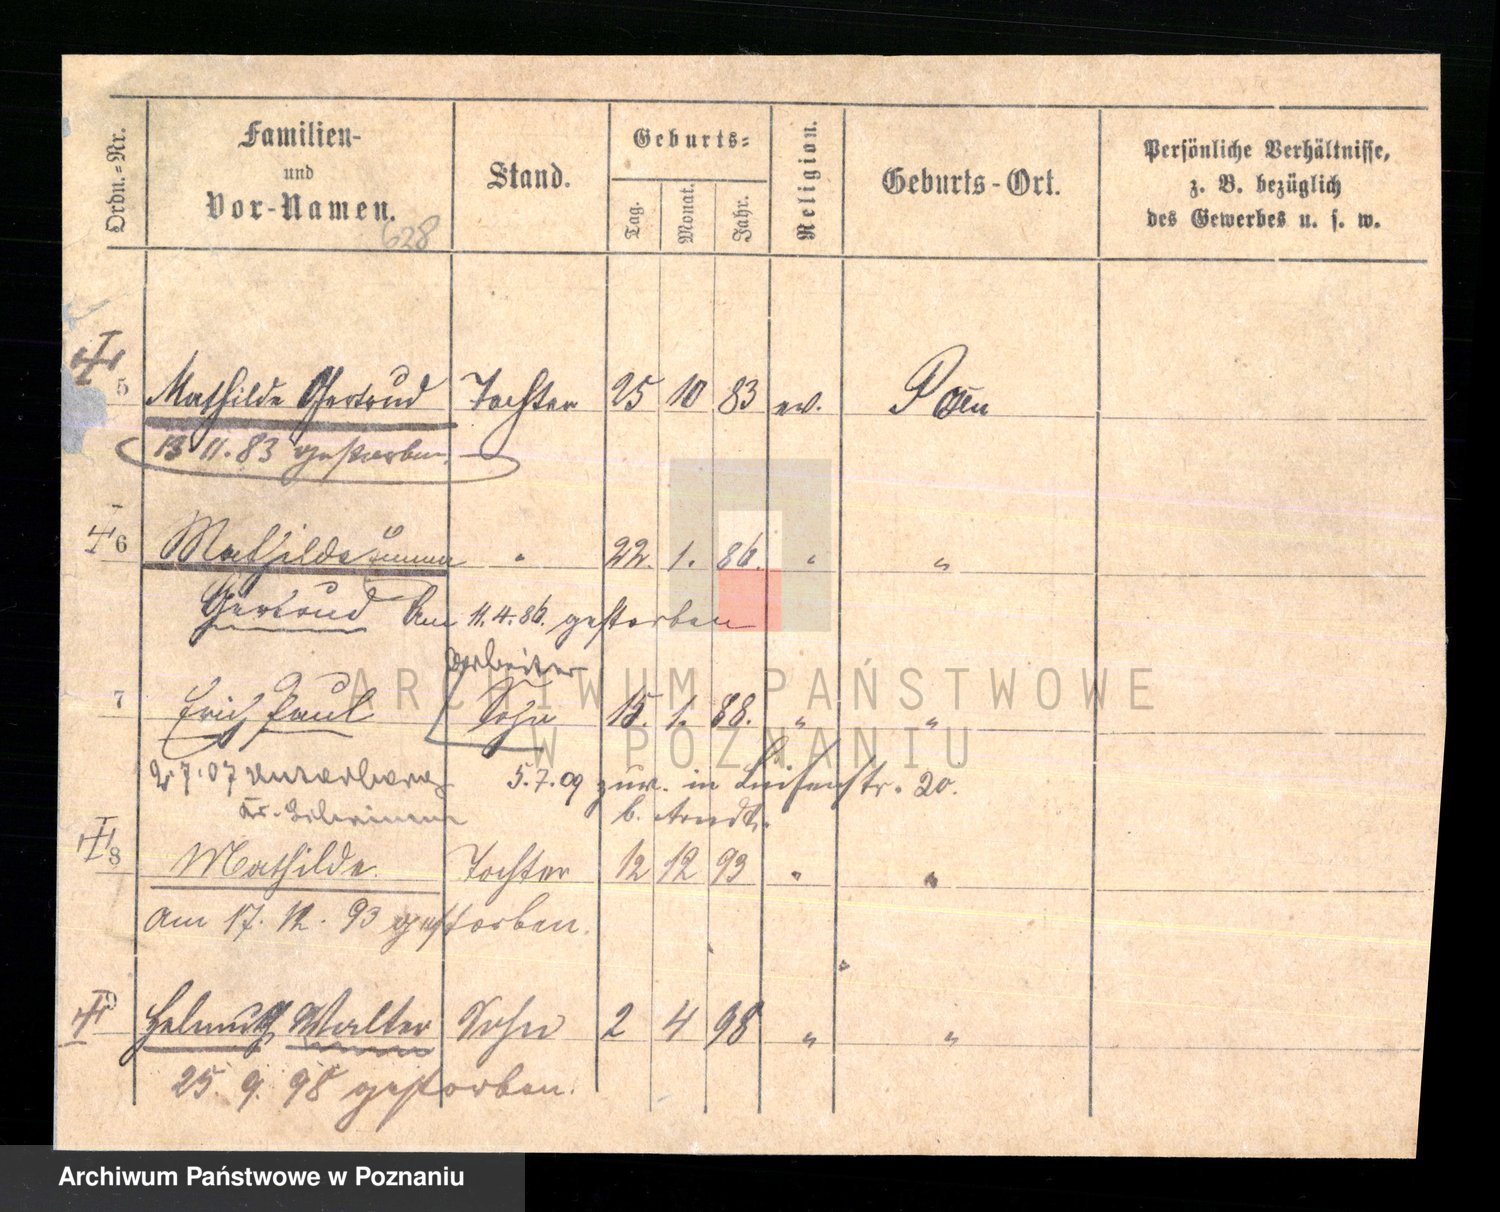 Ordn.-Nr.
Familien-
und
Vor-Namen.
628
Stand.
Geburts-
Tag. Monat. Jahr.
Religion.
Geburts-Ort.
Persönliche Verhältnisse,
z. B. bezüglich
des Gewerbes u. s. w.
5 Mathilde Gertrud Tochter 25 10 83 ev. Posen
13 11. 83 gestorben.
6 Mathilde Emma " 22. 1. 86. " "
Gertrud Am 11.4.86. gestorben
Arbeiter
7 Erich Paul Sohn 15. 1. 88. " "
2. 7. 07 5.7.09 zur. in Luisenstr. 20.
b. Arndt.
8 Mathilde. Tochter 12 12 93 " "
am 17. 12. 93 gestorben.
Helmuth Walter Sohn 2 4 98 " "
25. 9. 98 gestorben.
ARCHIWUM PAŃSTWOWE
W POZNANIU
Archiwum Państwowe w Poznaniu